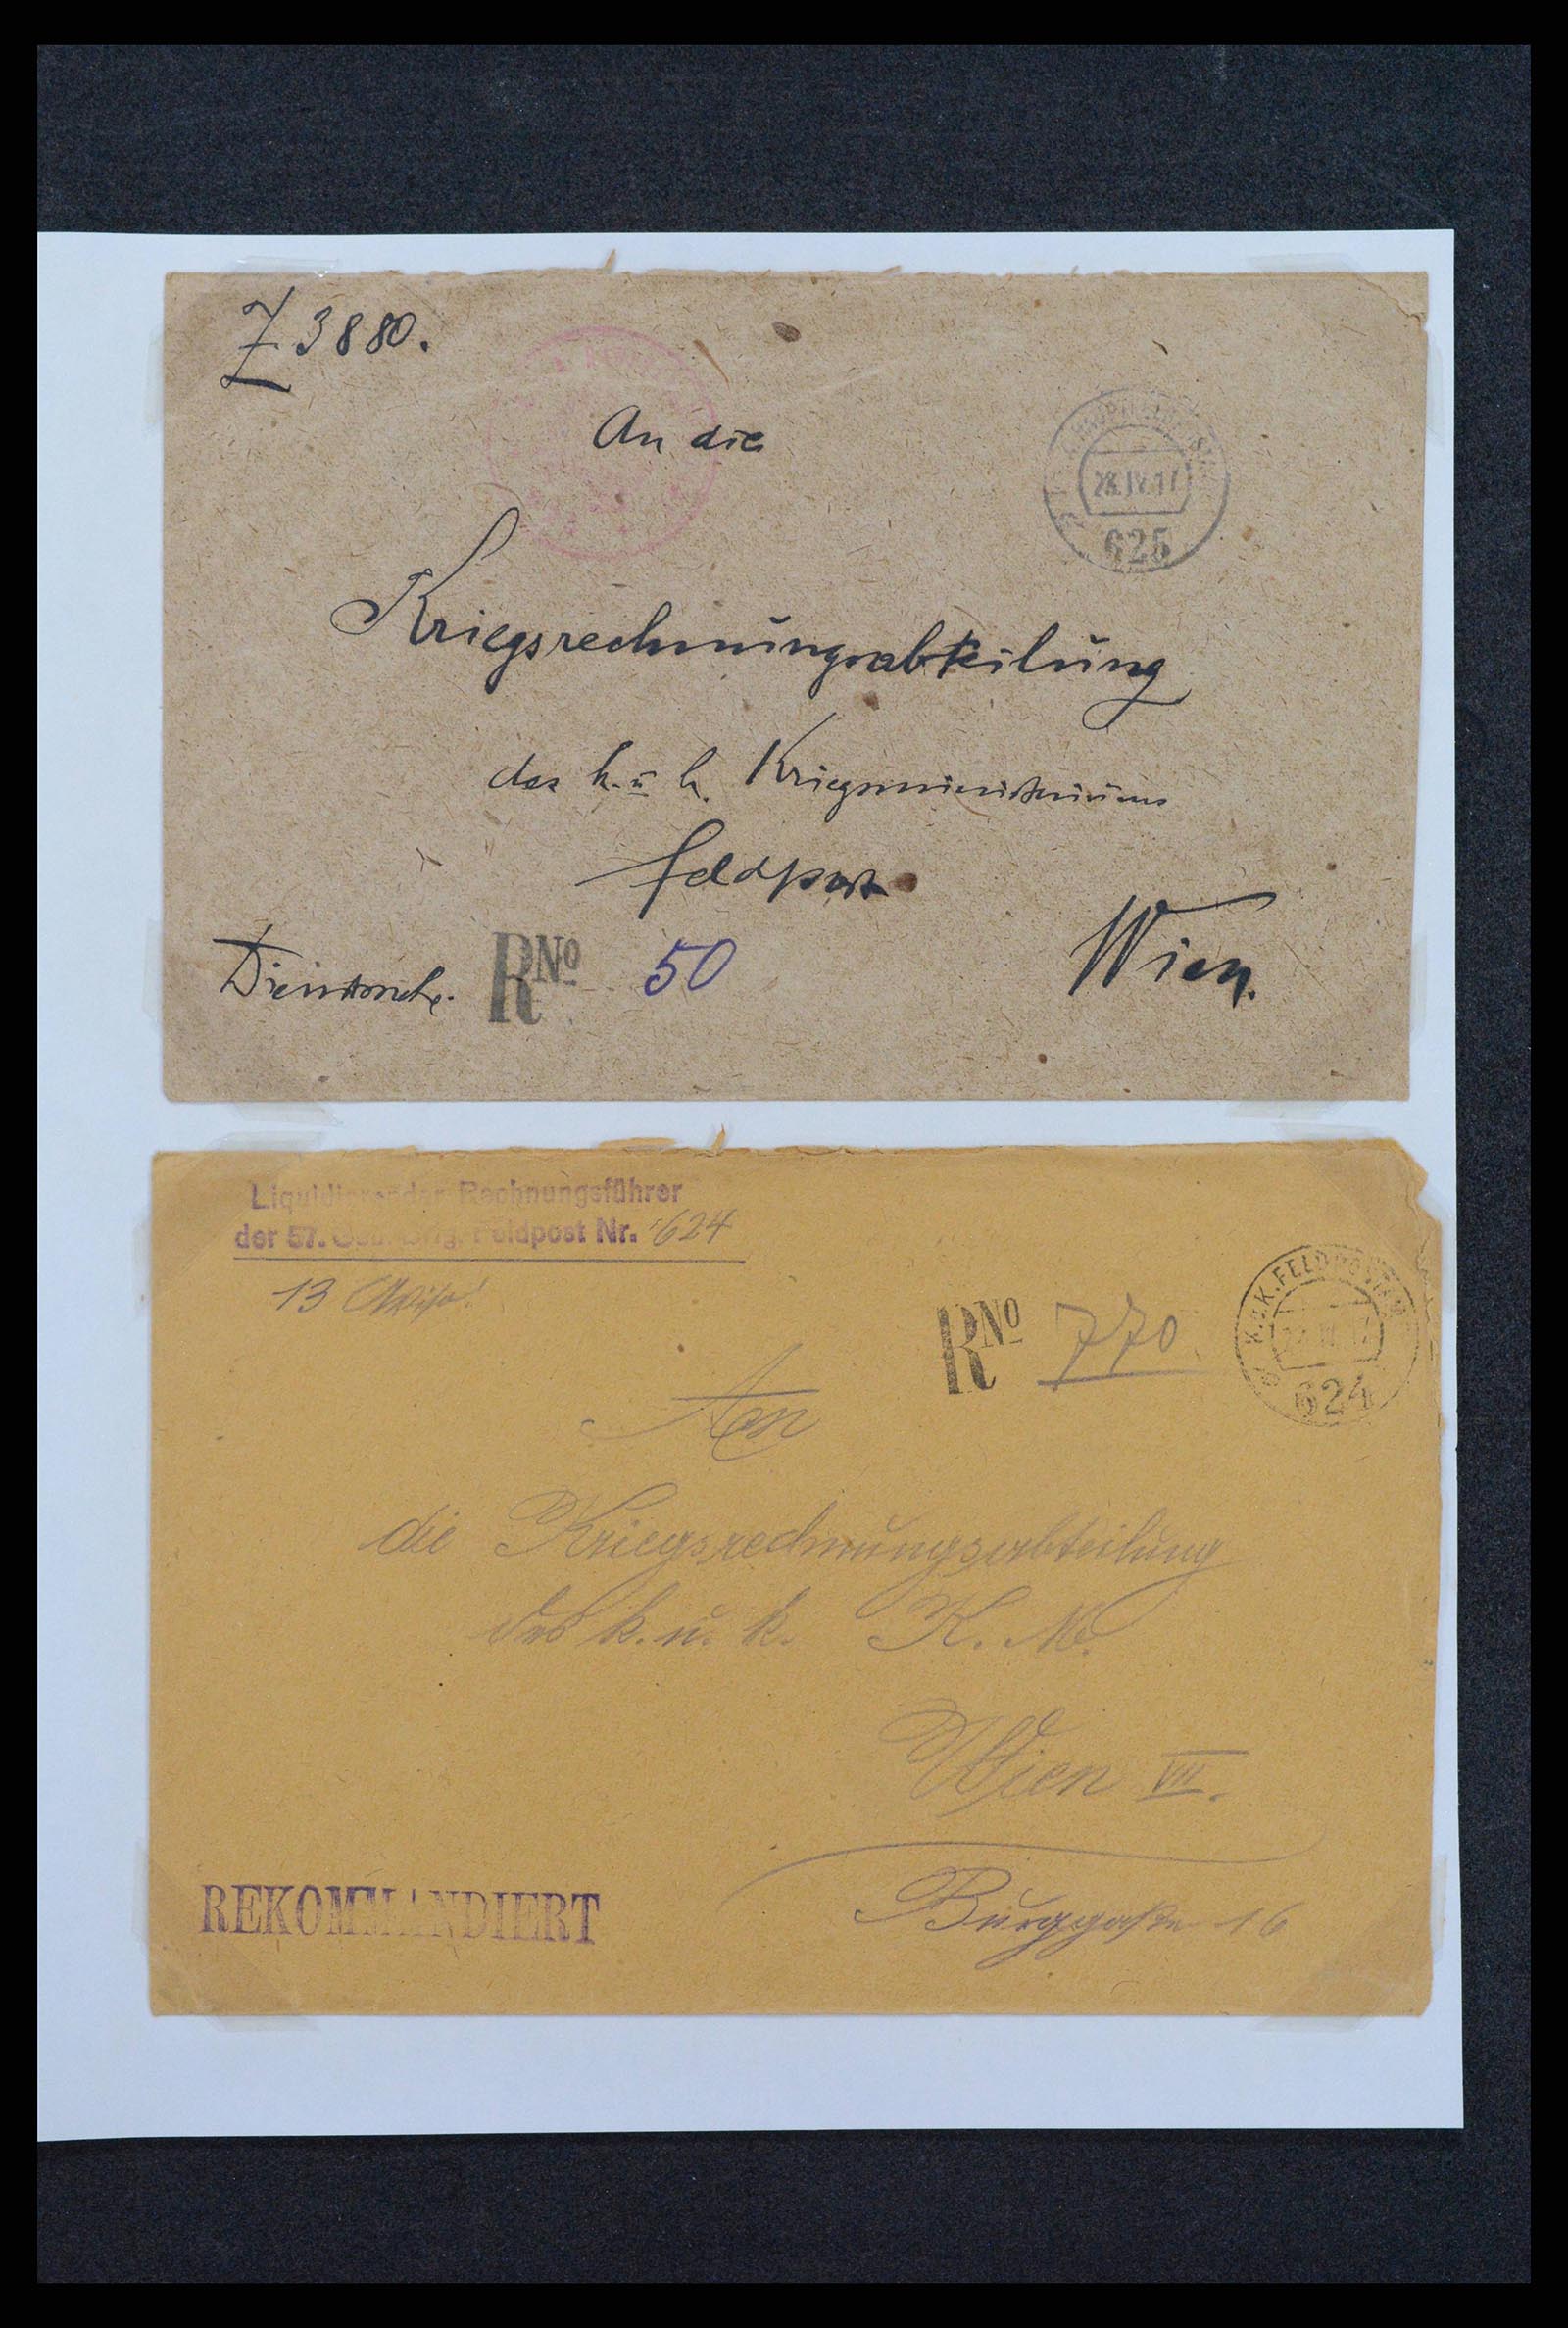 Z 3880.
An die
28.IV.17
625
Kriegsrechnungsabteilung
des k. u. k. Kriegsministeriums
Feldpost
Wien.
Dienstsache.
RNo 50
Liquidierender Rechnungsführer
der 57. Feldpost Nr. 624
13
RNo 770.
K.u.K. FELDPOSTAMT
624
An
die Kriegsrechnungsabteilung
des k. u. k. K. M.
Wien VII.
Burggasse 16
REKOMMANDIERT